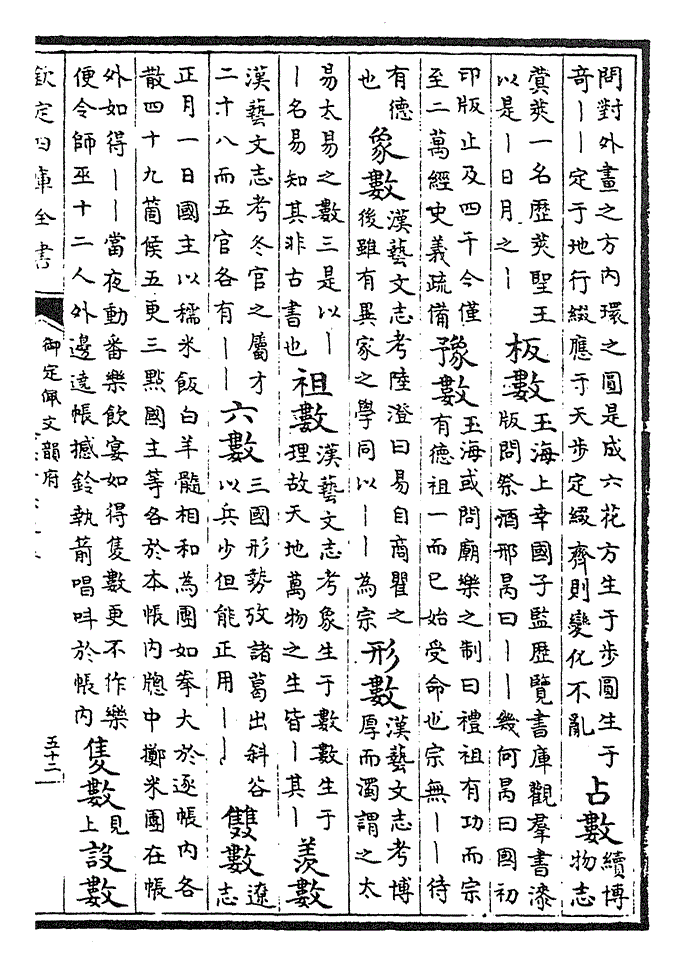 問對外畫之方内環之圓是成六花方生于步圓生于
奇丨丨定于地行綴應于天步定綴齊則變化不亂
占數
續博
物志
蓂莢一名歴莢聖王
以是丨日月之丨
板數
玉海上幸國子監歴覽書庫觀羣書漆
版問祭酒邢昺曰丨丨幾何昺曰國初
印版止及四千今僅
至二萬經史義疏備
豫數
玉海或問廟樂之制曰禮祖有功而宗
有德祖一而已始受命也宗無丨丨待
有德
也
象數
漢藝文志考陸澄曰易自商瞿之
後雖有異家之學同以丨丨為宗
形數
漢藝文志考博
厚而濁謂之太
易太易之數三是以丨
丨名易知其非古書也
祖數
漢藝文志考象生于數數生于
理故天地萬物之生皆丨其丨
羨數
漢藝文志考冬官之屬才
二十八而五官各有丨丨
六數
三國形勢攷諸葛出斜谷
以兵少但能正用丨丨
雙數
遼
志
正月一日國主以穤米飯白羊髓相和為團如拳大於逐帳内各
散四十九箇侯五更三點國主等各於本帳内牕中擲米團在帳
外如得丨丨當夜動番樂飲宴如得隻數更不作樂
便令師巫十二人外邊遶帳撼鈴執箭唱呌於帳内
隻數
見
上
設數
欽定四庫全書
御定佩文韻府
五十二